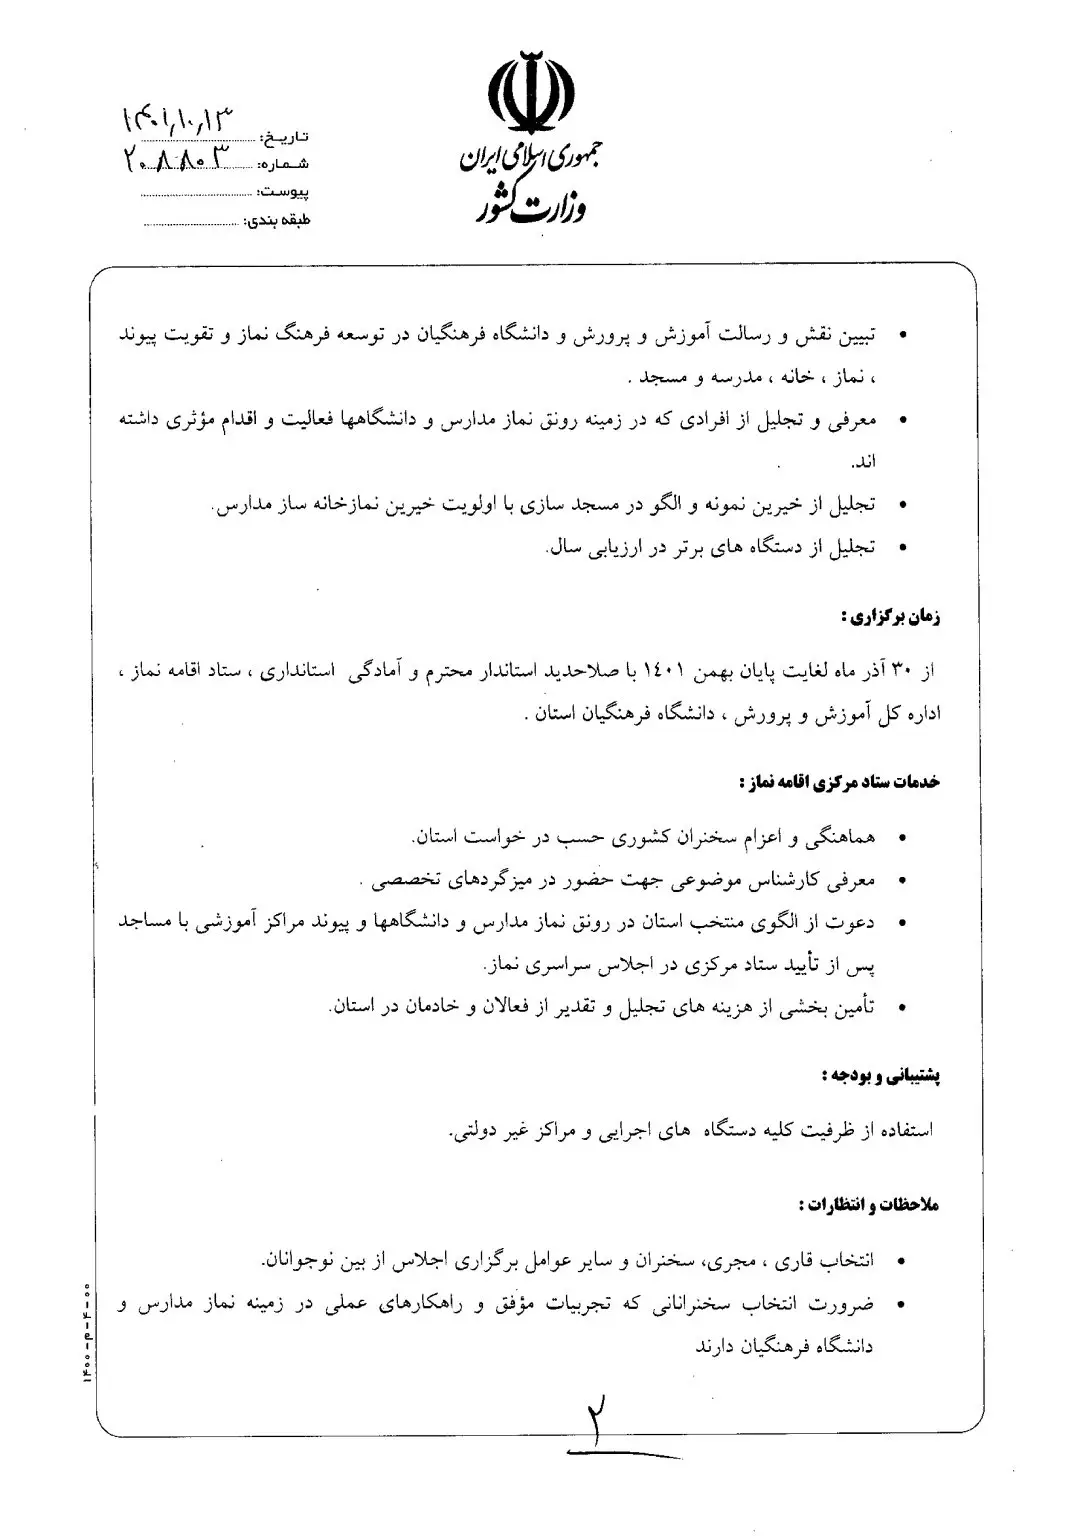 جمهوری اسلامی ایران
وزارت کشور
تاریخ: ۱۴۰۱,۱۰,۱۳
شماره: ۲۰۸۸۰۳
پیوست:
طبقه بندی:
• تبیین نقش و رسالت آموزش و پرورش و دانشگاه فرهنگیان در توسعه فرهنگ نماز و تقویت پیوند
، نماز ، خانه ، مدرسه و مسجد .
• معرفی و تجلیل از افرادی که در زمینه رونق نماز مدارس و دانشگاهها فعالیت و اقدام مؤثری داشته
اند.
• تجلیل از خیرین نمونه و الگو در مسجد سازی با اولویت خیرین نمازخانه ساز مدارس.
• تجلیل از دستگاه های برتر در ارزیابی سال.
زمان برگزاری :
از ۳۰ آذر ماه لغایت پایان بهمن ۱٤۰۱ با صلاحدید استاندار محترم و آمادگی استانداری ، ستاد اقامه نماز ،
اداره کل آموزش و پرورش ، دانشگاه فرهنگیان استان .
خدمات ستاد مرکزی اقامه نماز :
• هماهنگی و اعزام سخنران کشوری حسب در خواست استان.
• معرفی کارشناس موضوعی جهت حضور در میزگردهای تخصصی .
• دعوت از الگوی منتخب استان در رونق نماز مدارس و دانشگاهها و پیوند مراکز آموزشی با مساجد
پس از تأیید ستاد مرکزی در اجلاس سراسری نماز.
• تأمین بخشی از هزینه های تجلیل و تقدیر از فعالان و خادمان در استان.
پشتیبانی و بودجه :
استفاده از ظرفیت کلیه دستگاه های اجرایی و مراکز غیر دولتی.
ملاحظات و انتظارات :
• انتخاب قاری ، مجری، سخنران و سایر عوامل برگزاری اجلاس از بین نوجوانان.
• ضرورت انتخاب سخنرانانی که تجربیات مؤفق و راهکارهای عملی در زمینه نماز مدارس و
دانشگاه فرهنگیان دارند
۲
۱۴۰۰-م-۴-۰۰